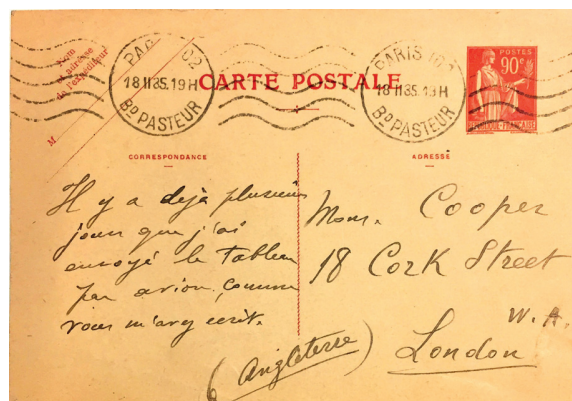 Nom
et adresse
de l'expéditeur
M
PARIS 102
18 II 35.19H
Bd PASTEUR
CARTE POSTALE
PARIS 102
18 II 35.19H
Bd PASTEUR
POSTES
90c
REPUBLIQUE FRANÇAISE
CORRESPONDANCE
Il y a dejà plusieurs
jours que j'ai
envoyé le tableau
par avion, comme
vous m'avez ecrit.
ADRESSE
Mons. Cooper
18 Cork Street
W.
London
(Angleterre)